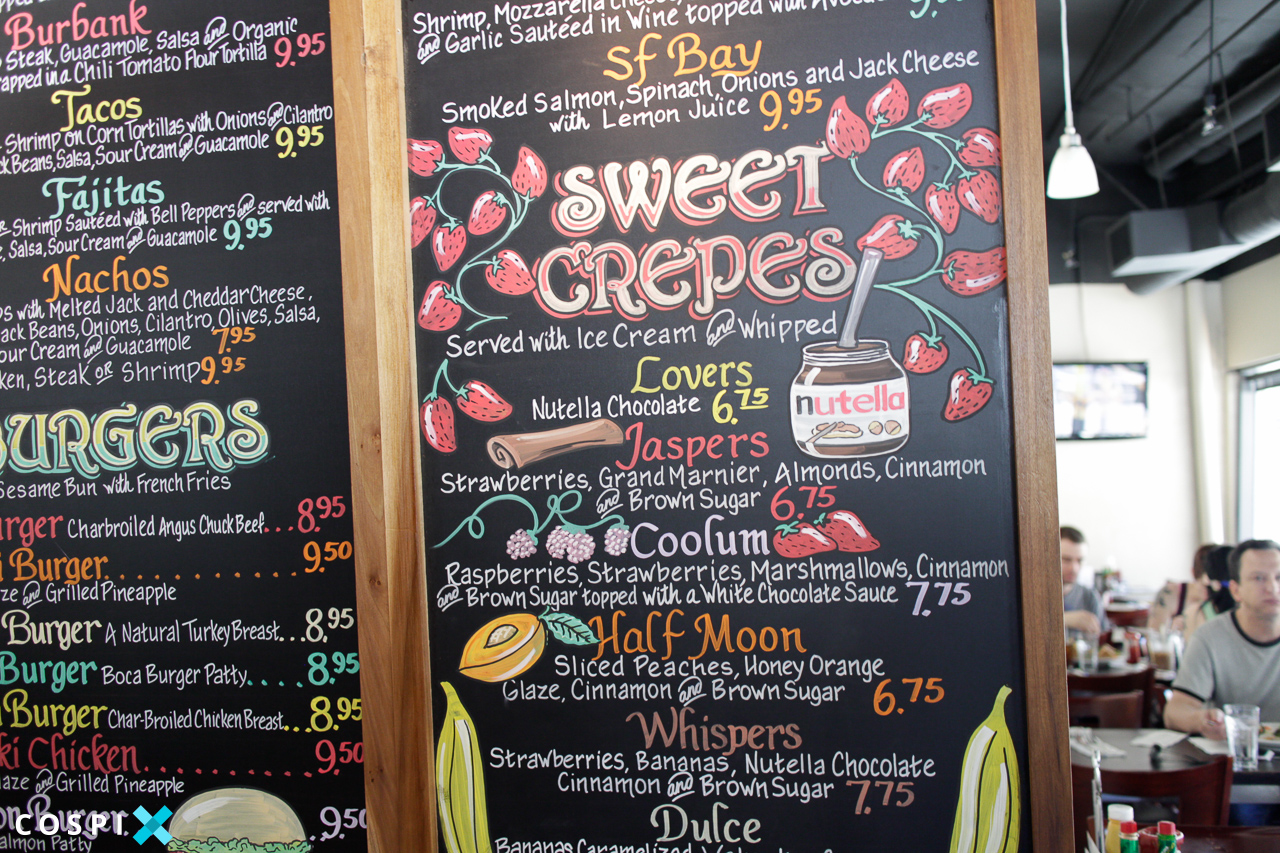 Burbank
Steak, Guacamole, Salsa and Organic
in a Chili Tomato Flour Tortilla 9.95
Tacos
Shrimp on Corn Tortillas with Onions and Cilantro
Beans, Salsa, Sour Cream and Guacamole 9.95
Fajitas
Shrimp Sautéed with Bell Peppers and served with
Salsa, Sour Cream and Guacamole 9.95
Nachos
with Melted Jack and Cheddar Cheese,
Beans, Onions, Cilantro, Olives, Salsa,
Cream and Guacamole 7.95
Steak or Shrimp 9.95
BURGERS
Sesame Bun with French Fries
Charbroiled Angus Chuck Beef... 8.95
Burger. . . . . . . . . . . . 9.50
and Grilled Pineapple
Burger A Natural Turkey Breast... 8.95
Burger Boca Burger Patty. . . . 8.95
Burger Char-Broiled Chicken Breast... 8.95
Chicken. . . . . . . . . . . . 9.50
and Grilled Pineapple
Burger 9.50
Patty
Shrimp, Mozzarella
and Garlic Sautéed in Wine topped with
Sf Bay
Smoked Salmon, Spinach, Onions and Jack Cheese
with Lemon Juice 9.95
SWEET
CREPES
Served with Ice Cream and Whipped
Lovers
Nutella Chocolate 6.75
nutella
Jaspers
Strawberries, Grand Marnier, Almonds, Cinnamon
and Brown Sugar 6.75
Coolum
Raspberries, Strawberries, Marshmallows, Cinnamon
and Brown Sugar topped with a White Chocolate Sauce 7.75
Half Moon
Sliced Peaches, Honey Orange
Glaze, Cinnamon and Brown Sugar 6.75
Whispers
Strawberries, Bananas, Nutella Chocolate
Cinnamon and Brown Sugar 7.75
Dulce
Bananas Caramelized
COSPIX